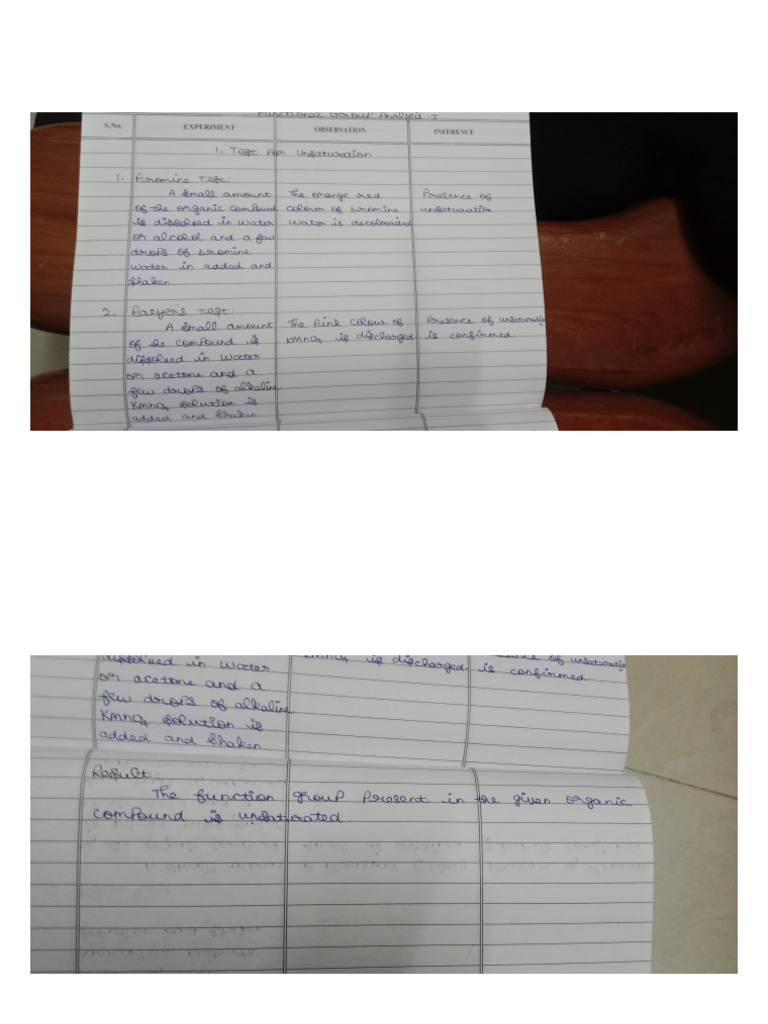 Functional Group Analysis - I
S.No. EXPERIMENT OBSERVATION INFERENCE
1. Test For Unsaturation
1. Bromine Test:
A small amount The orange red Presence of
of the organic compound colour of bromine unsaturation.
is dissolved in water water is decolourised
or alcohol and a few
drops of bromine
water in added and
shaken.
2. Baeyer's Test:
A small amount The Pink colour of Presence of unsaturation
of the compound is KMnO4 is discharged. is confirmed.
dissolved in water
or acetone and a
few drops of alkaline
KMnO4 solution is
added and shaken
dissolved in water KMnO4 is discharged. is confirmed.
or acetone and a
few drops of alkaline
KMnO4 solution is
added and shaken.
Result:
The function group present in the given organic
compound is unsaturated.